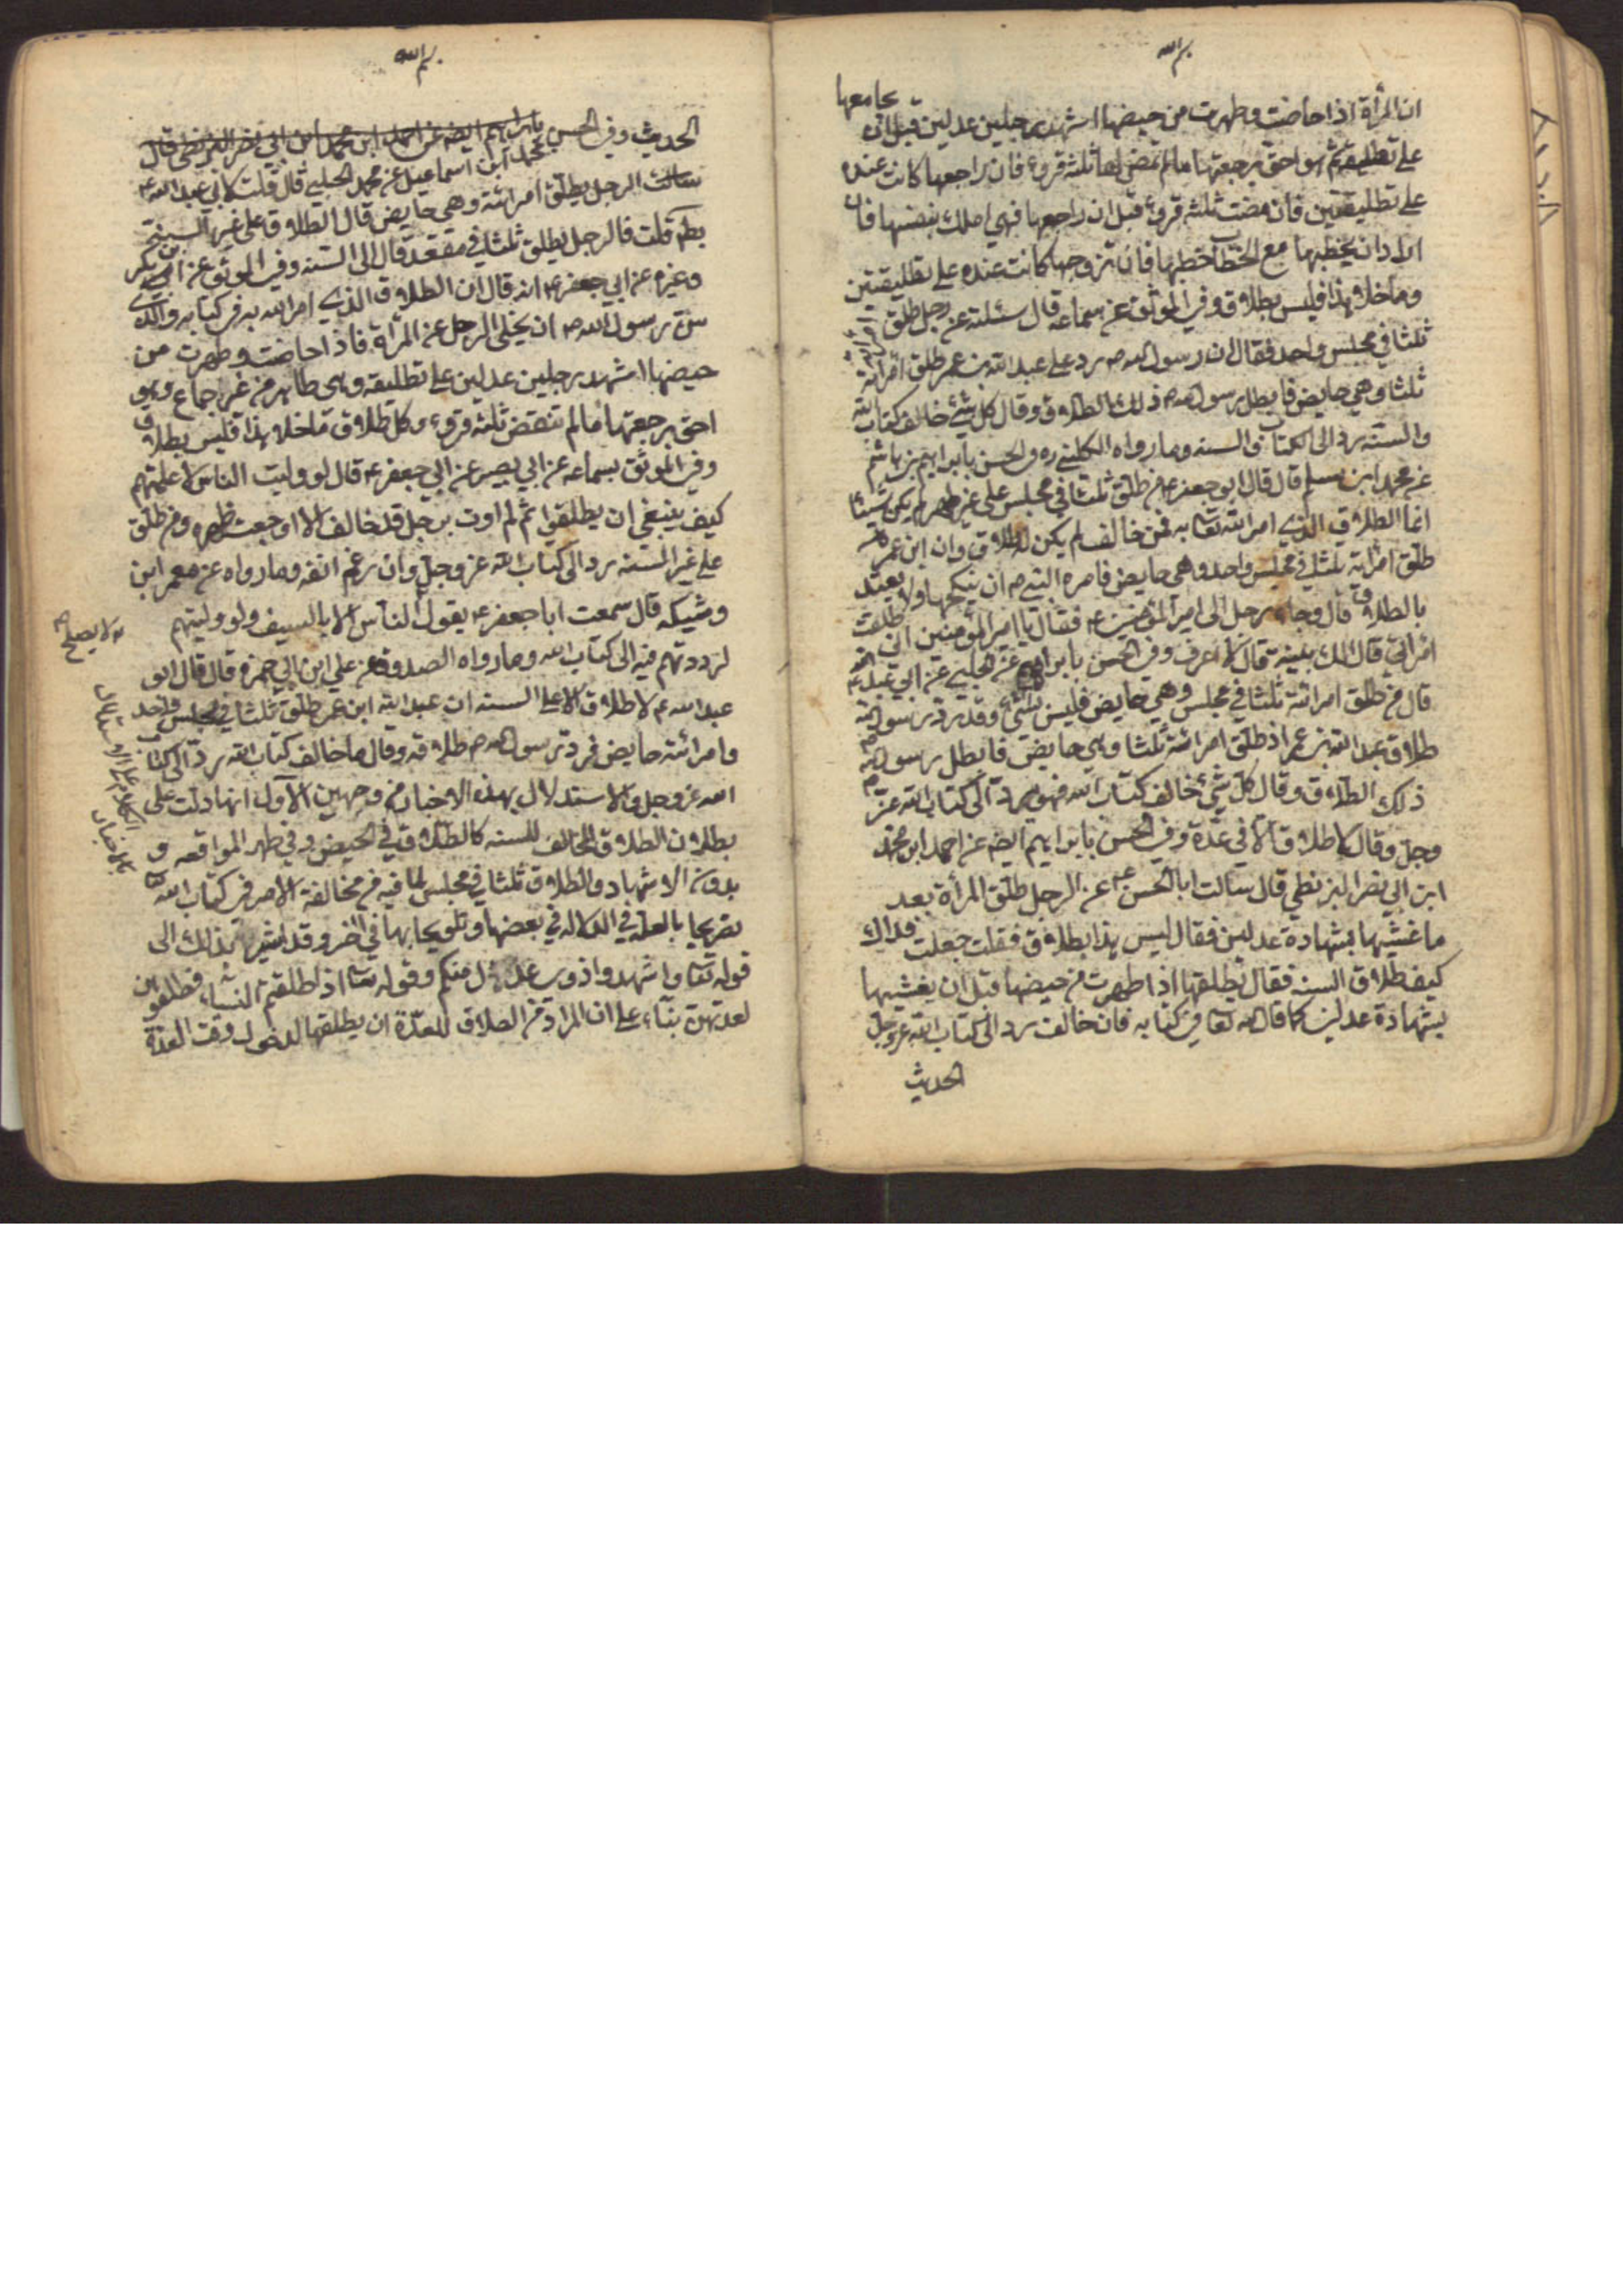 بسم الله
ان المرأة اذا حاضت وطهرت من حيضها اشهد رجلين عدلين قبل ان يجامعها
على تطليقة ثم هو احق برجعتها ما لم تمض لها ثلثة قروء فان راجعها كانت عنده
على تطليقتين فان مضت ثلثة قروء قبل ان راجعها فهي املك بنفسها فان
اراد ان يخطبها مع الخطاب خطبها فان تزوجها كانت عنده على تطليقتين
وما خلا هذا فليس بطلاق وفي الموثق عن سماعه قال سئلته عن رجل طلق امرأته
ثلثا في مجلس واحد فقال ان رسول الله ص رد على عبد الله بن عمر طلق امرأته
ثلثا وهي حايض فابطل رسول الله ص ذلك الطلاق وقال كل شئ خالف كتاب الله
والسنة رد الى الكتاب والسنه وما رواه الكليني ره في الحسن بابراهيم بن هاشم
عن محمد ابن مسلم قال قال ابو جعفر ع من طلق ثلثا في مجلس على غير طهر لم يكن شيئا
انما الطلاق الذي امر الله تعا به فمن خالف لم يكن له طلاق وان ابن عمر
طلق امرأته ثلثا في مجلس واحد وهي حايض فامره النبي ص ان ينكحها ولا يعتد
بالطلاق قال وجاء رجل الى امير المؤمنين ع فقال يا امير المؤمنين اني طلقت
امرأتي قال الك بينة قال لا اعرف وفي الحسن بابراهيم عن الحلبي عن ابي عبد الله ع
قال من طلق امرأته ثلثا في مجلس وهي حايض فليس بشئ وقد رد رسول الله ص
طلاق عبد الله بن عمر اذ طلق امرأته ثلثا وهي حايض فابطل رسول الله ص
ذلك الطلاق وقال كل شئ خالف كتاب الله فهو رد الى كتاب الله عز
وجل وقال لا طلاق الا في عدة وفي الحسن بابراهيم ايضا عن احمد ابن محمد
ابن ابي نصر البزنطي قال سألت ابا الحسن ع عن الرجل طلق المرأة بعد
ما غشيها بشهادة عدلين فقال ليس هذا بطلاق فقلت جعلت فداك
كيف طلاق السنه فقال يطلقها اذا طهرت من حيضها قبل ان يغشيها
بشهادة عدلين كما قال الله تعا في كتابه فان خالف رد الى كتاب الله عز وجل
الحديث
بسم الله
الحديث وفي الحسن بابراهيم ايضا عن احمد ابن محمد ابن ابي نصر البزنطي قال
سألت الرجل يطلق امرأته وهي حايض قال الطلاق على غير السنة
محمد ابن اسماعيل عن محمد الحلبي قال قلت لابي عبد الله ع
بطل قلت فالرجل يطلق ثلثا في مقعد قال الى السنه وفي الموثق عن ابن بكير
وغيره عن ابي جعفر ع انه قال ان الطلاق الذي امر الله به في كتابه والذي
سن رسول الله ص ان يخلى الرجل عن المرأة فاذا حاضت وطهرت من
حيضها اشهد رجلين عدلين على تطليقه وهي طاهر من غير جماع وهو
احق برجعتها ما لم تنقض ثلثه قروء وكل طلاق ما خلا هذا فليس بطلاق
وفي الموثق بسماعه عن ابي بصير عن ابي جعفر ع قال لو وليت الناس لاعلمتهم
كيف ينبغي ان يطلقوا ثم لم اوت برجل قد خالف الا اوجعت ظهره ومن طلق
على غير السنه رد الى كتاب الله عز وجل وان رغم انفه وما رواه عن معمر ابن
وشيكه قال سمعت ابا جعفر ع يقول لا يصلح الناس الا بالسيف ولو وليتهم
لرددتهم فيه الى كتاب الله وما رواه الصدوق عن علي ابن ابي حمزه قال قال ابو
عبد الله ع لا طلاق الا على السنه ان عبد الله ابن عمر طلق ثلثا في مجلس واحد
وامرأته حايض فرد رسول الله ص طلاقه وقال ما خالف كتاب الله رد الى كتاب
الله عز وجل والاستدلال بهذه الاخبار من وجهين الاول انها دلت على
بطلان الطلاق المخالف للسنه كالطلاق في الحيض وفي طهر المواقعه و
بدون الاشهاد والطلاق ثلثا في مجلس لما فيه من مخالفة الامر في كتاب الله
تصريحا بالعلة في الدلاله في بعضها وتلويحا بها في اخر وقد اشير بذلك الى
قوله تعا واشهدوا ذوي عدل منكم وقوله تعا اذا طلقتم النساء فطلقوهن
لعدتهن بناء على ان المراد من الطلاق للعدة ان يطلقها لدخول وقت العدة
الكلام على الاستدلال
بالاخبار